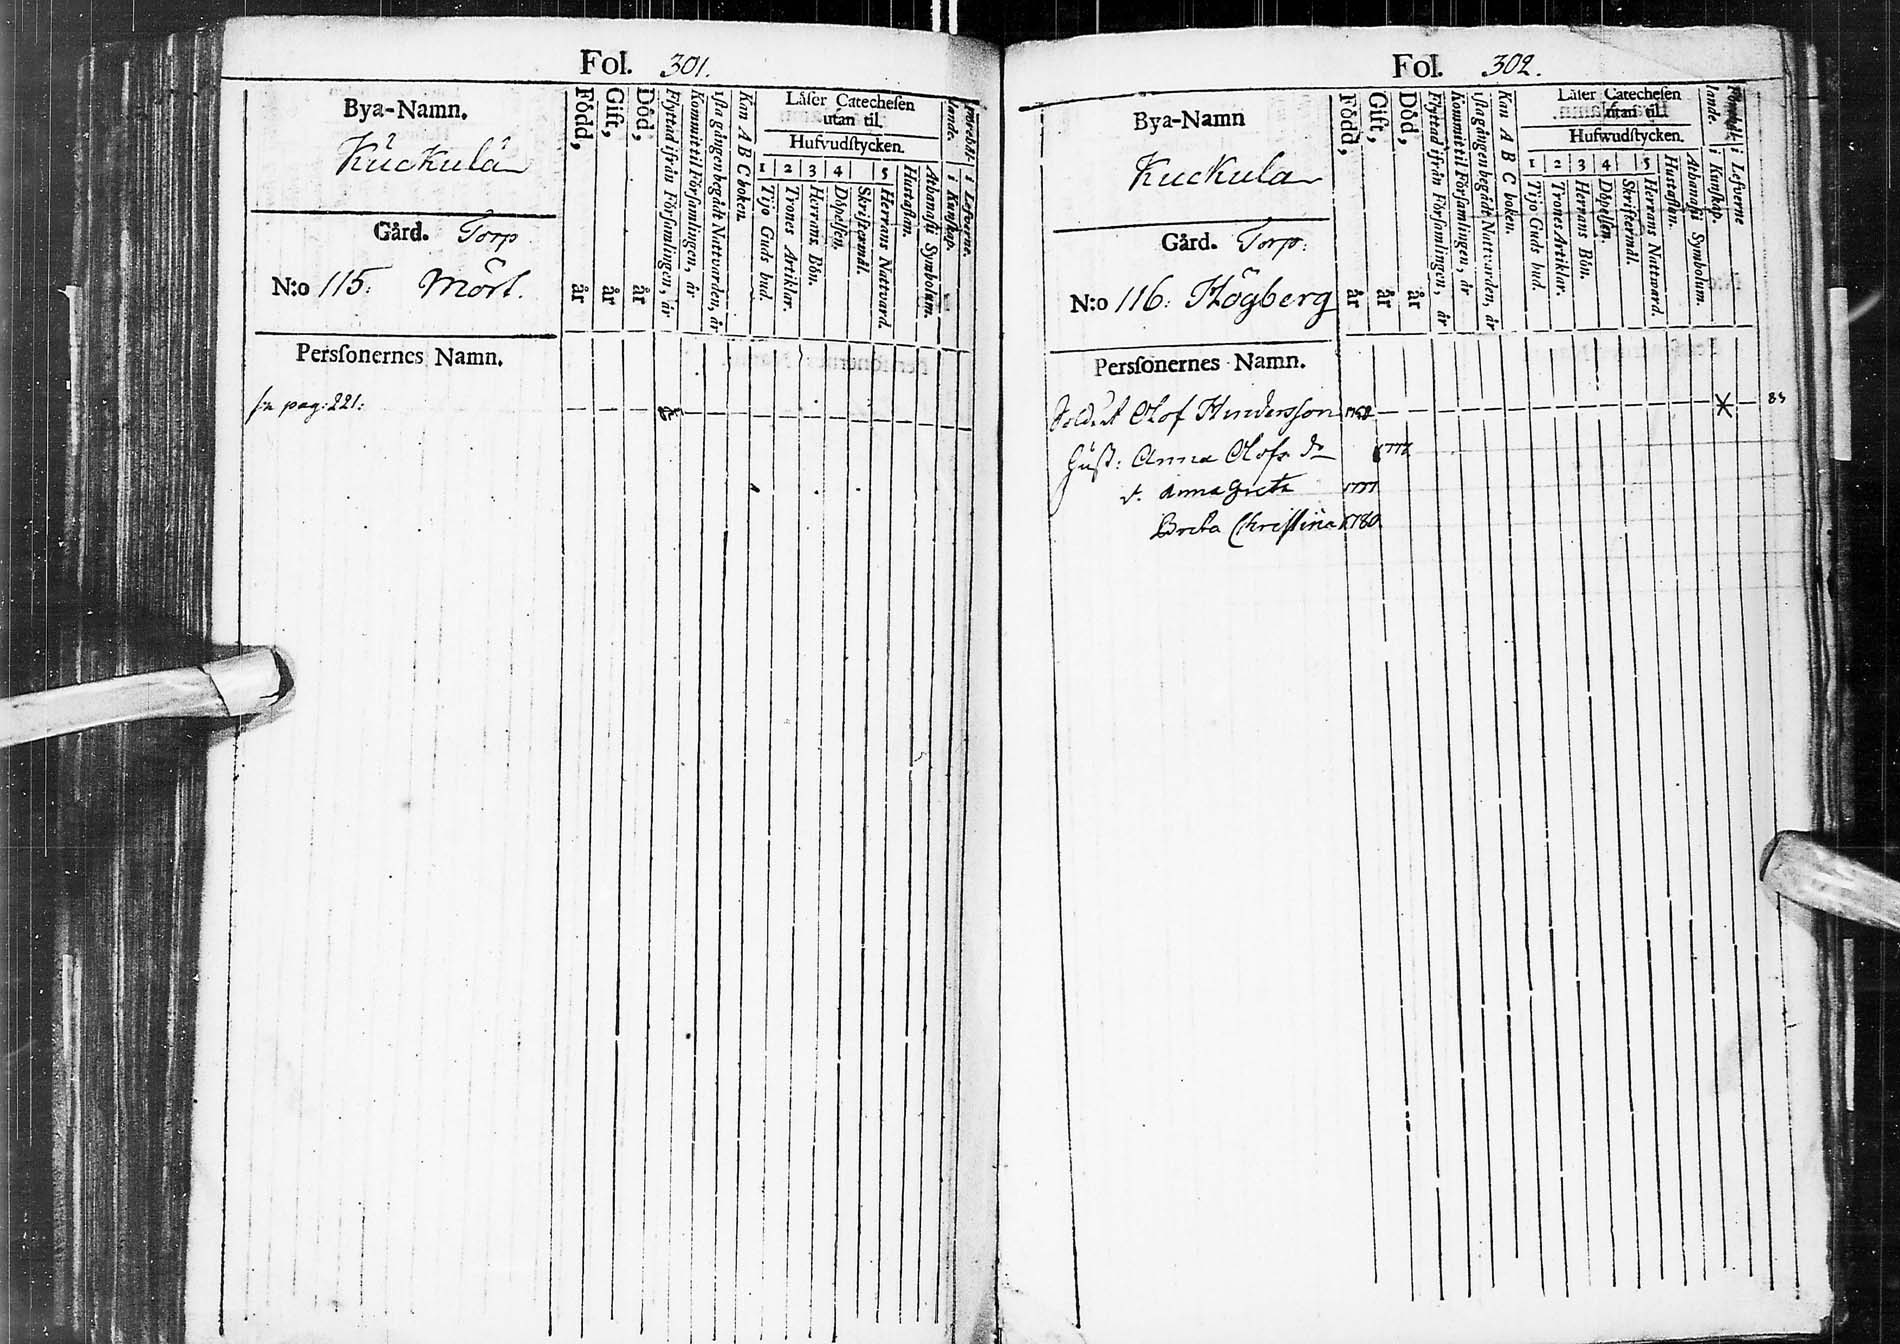 Fol. 301.
Bya-Namn.
Kuckula
Gård. Torp
N:o 115: Mört.
Född, år
Gift, år
Död, år
Flyttad ifrån Församlingen, år
Kommit til Församlingen, år
1sta gången begådt Nattvarden, år
Kan A B C boken.
Låser Catechesen
utan til.
Hufvudstycken.
1 2 3 4 5
Tijo Guds bud.
Trones Artiklar.
Herrans Bön.
Döpelsen.
Skriftermål.
Herrans Nattvard.
Hustaflan.
Athanasii Symbolum.
lande. i Kunskap.
i Lefverne.
Personernes Namn.
pag: 221:
Fol. 302.
Bya-Namn
Kuckula
Gård. Torp:
N:o 116: Högberg
Född, år
Gift, år
Död, år
Flyttad ifrån Församlingen, år
Kommit til Församlingen, år
1sta gången begådt Nattvarden, år
Kan A B C boken.
Låser Catechesen
utan til.
Hufwudstycken.
1 2 3 4 5
Tijo Guds bud.
Trones Artiklar.
Herrans Bön.
Döpelsen.
Skriftermål.
Herrans Nattward.
Hustaflan.
Athanasii Symbolum.
lande. i Kunskap.
i Lefverne
Personernes Namn.
Soldat Olof Hindersson
Hust: Anna Olofs dr
d. Anna Greta 1777
Breta Christina 1780